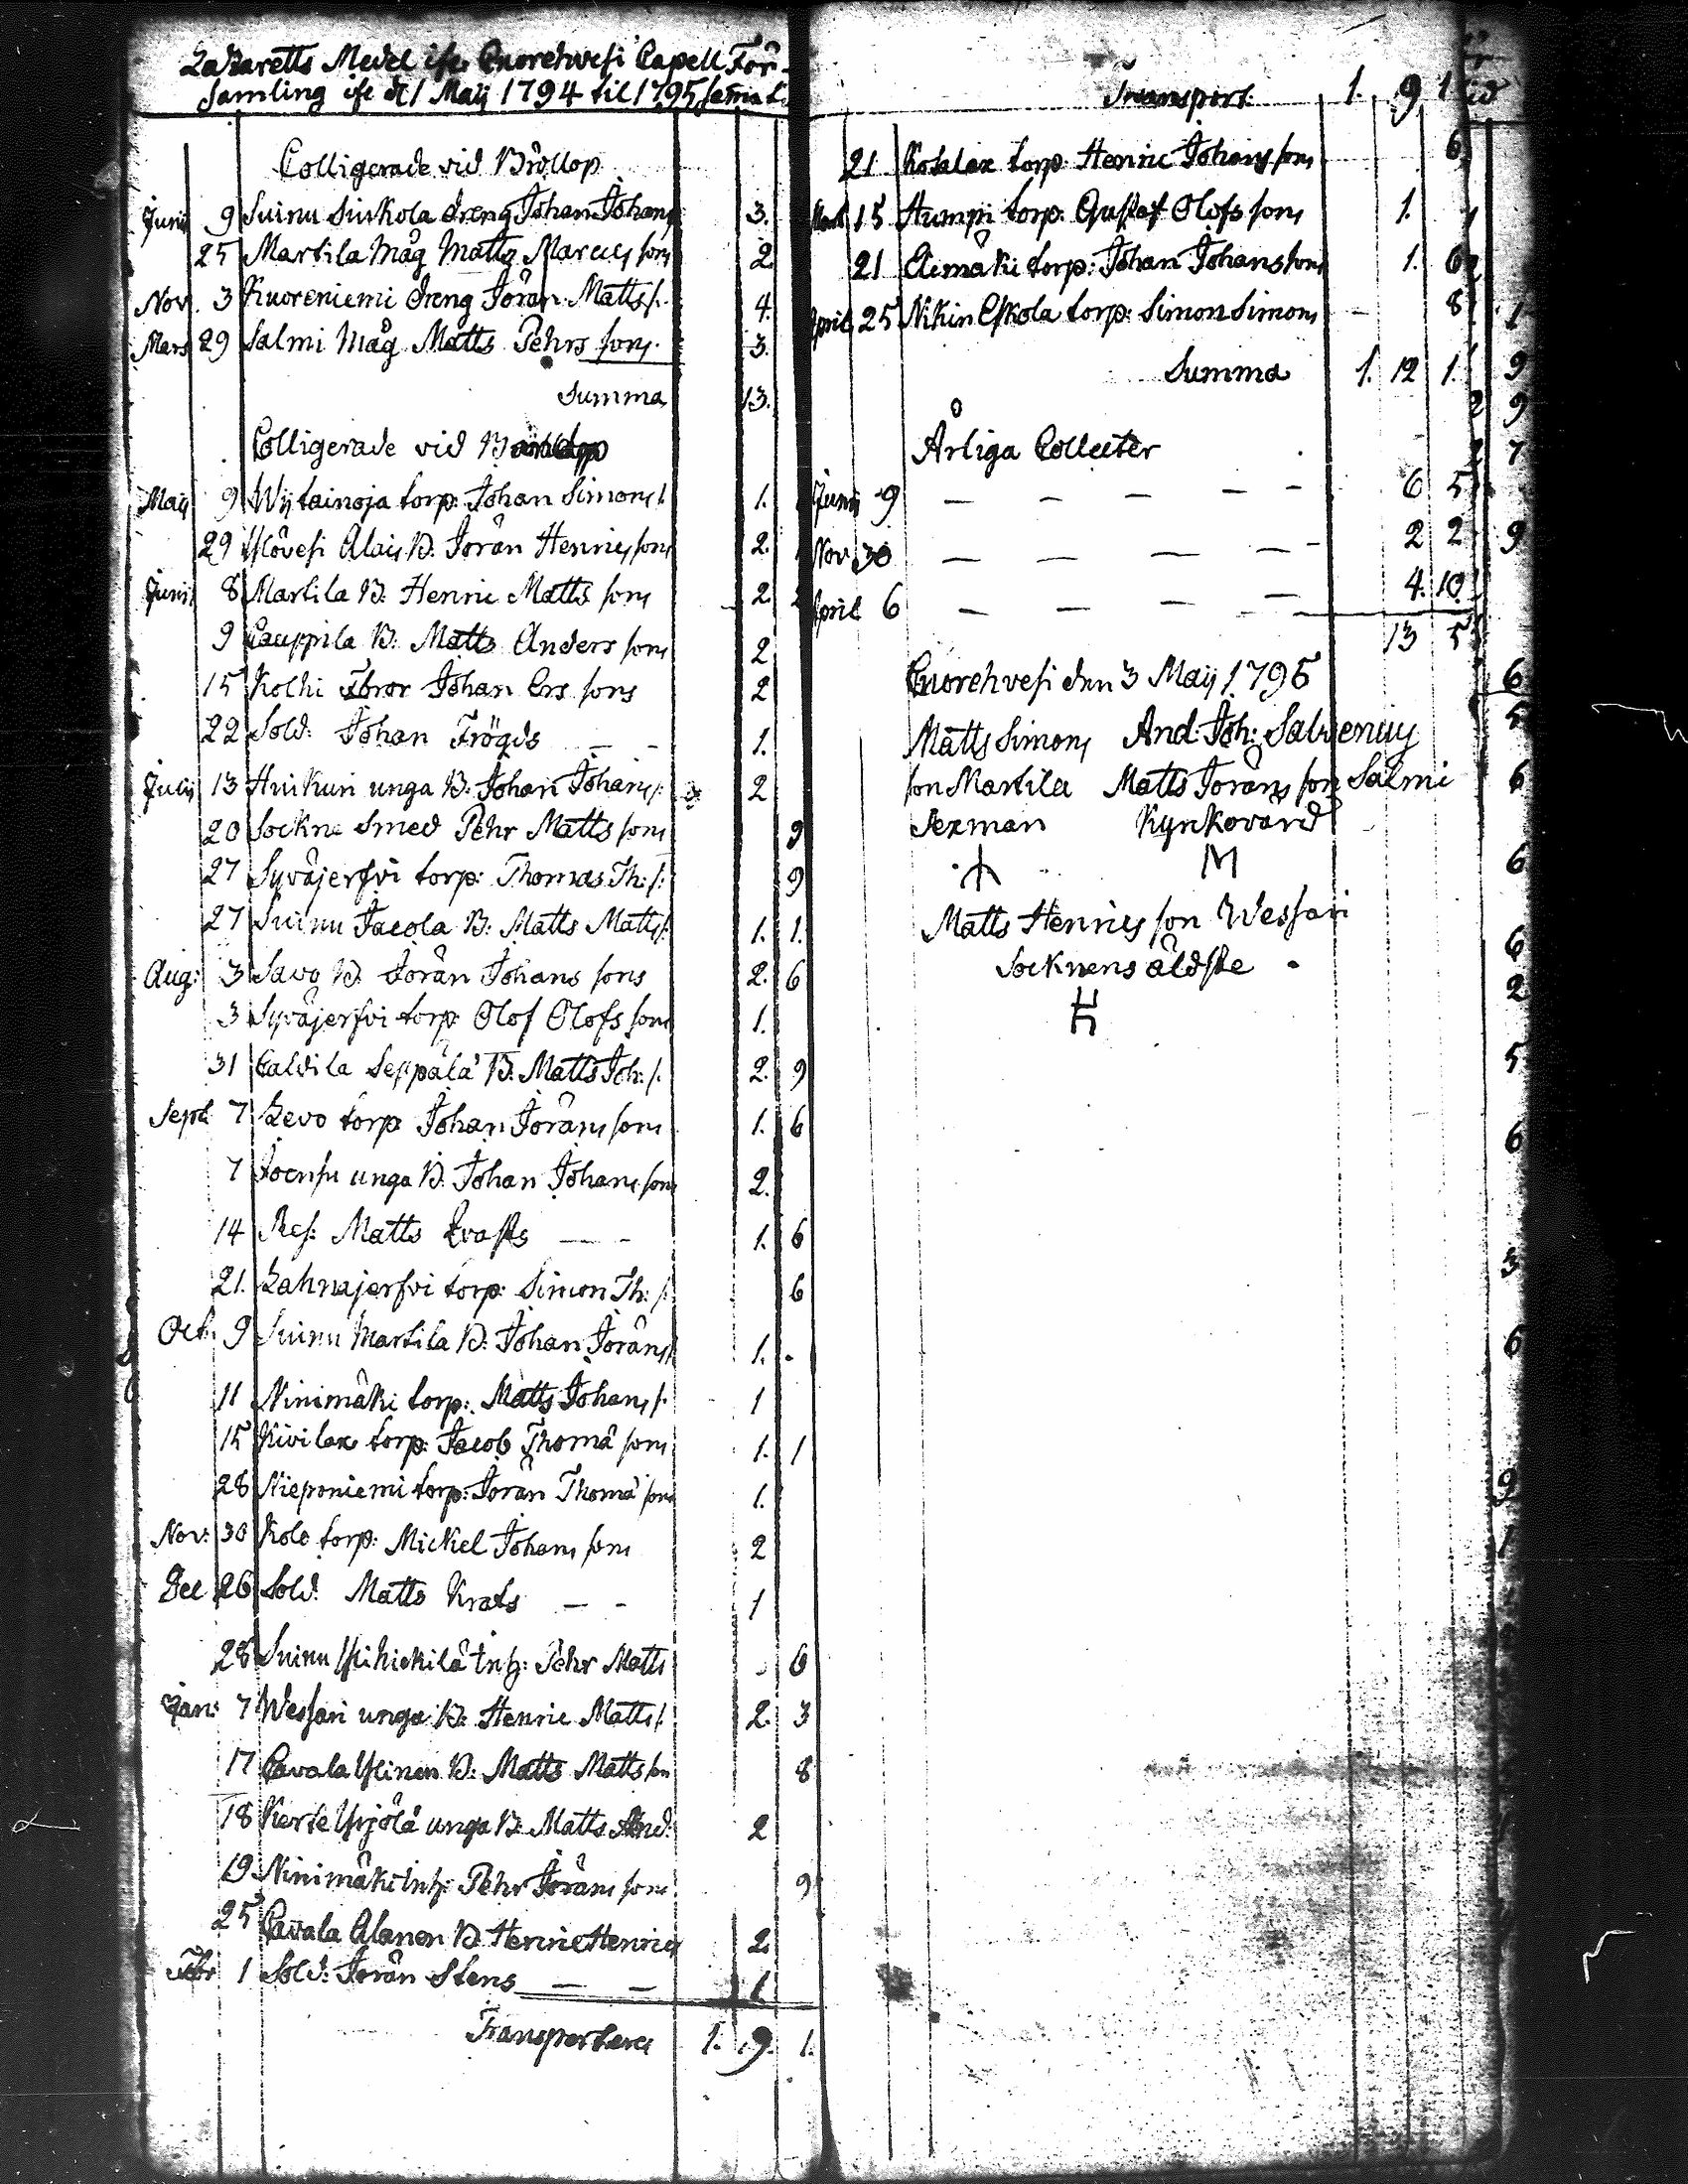 Lazaretts Medel ifr. Quorehvesi Capell För-
samling ifr. d 1 Maij 1794 til 1795 sama
Colligerade vid Bröllop
Junii 9 Suinu Sirkola dreng Johan Johans 3.
25 Martila Måg Matts Marcus sons 2
Nov. 3 Kuoreniemi dreng Jöran Matts s. 4.
Mars 29 Salmi Måg Matts Pehrs sons 3.
Summa 13.
Colligerade vid Barndop
Maij 9 Wijtainoja torp: Johan Simons s. 1.
29 Ylövesi Alais B. Jöran Henrics sons 2.
Junii 8 Martila B: Henric Matts sons 2
9 Pauppila B: Matts Anders sons 2
15 Kolhi Johan Ers sons 2
22 Sold: Johan Frögds — - 1.
Julij 13 Huikuri unga B: Johan Johans s: 2
20 Sockne Smed Pehr Matts sons 9
27 Syväjerfvi torp: Thomas Th: s: 9
27 Suinu Jacola B: Matts Matts s: 1. 1.
Aug: 3 Savo B. Jöran Johans sons 2. 6
3 Syväjerfvi torp: Olof Olofs sons 1.
31 Caldila Seppälä B: Matts Joh: s. 2. 9
Sept 7 Levo torp: Johan Jörans sons 1. 6
7 Joensu unga B. Johan Johans sons 2.
14 Res: Matts Qvasts — - 1. 6
21. Lahnajerfvi torp: Simon Th: s. 6
Oct. 9 Suinu Martila B: Johan Jörans s 1. .
11 Ninimäki torp: Matts Johans s. 1
15 Kivilax torp: Jacob Thomä sons 1. 1
28 Nieponiemi torp: Jöran Thomä sons 1.
Nov: 30 Kolo torp: Mickel Johans sons 2
Dec 26 Sold. Matts Krats — - 1
28 Suinu Yli hickilä Inh: Pehr Matts 6
Jan: 7 Wessari unga B: Henric Matts s. 2. 3
17 Pavala Ylinen B: Matts Matts son 8
18 Kerte Yrjölä unga B. Matts And: 2
19. Ninimäki Inh: Pehr Jörans sons 9
25 Pavala Alanen B Henric Henrics 2.
Febr 1 Sold: Jöran Stens — — 1.
Transportera 1. 9. 1.
Transport. 1. 9. 1
21 Kosalax torp: Henric Johans sons 6
Mars 15 Humpi torp: Gustaf Olofs sons 1.
21 Aimäki torp: Johan Johans sons 1. 6
April 25 Nikin Eskola torp: Simon Simons - 8
Summa 1. 12 1.
Årliga Collecter
Junii 9 — — — — - 6 5
Nov 30 — — — — - 2 2
April 6 — — — — 4. 10
13 5
Quorehvesi den 3 Maij 1795
Matts Simons And: Joh: Salvenius
son Martila Matts Jörans son Salmi
Sexman Kyrkovärd
M
Matts Henrics son Wessari
Socknens äldste